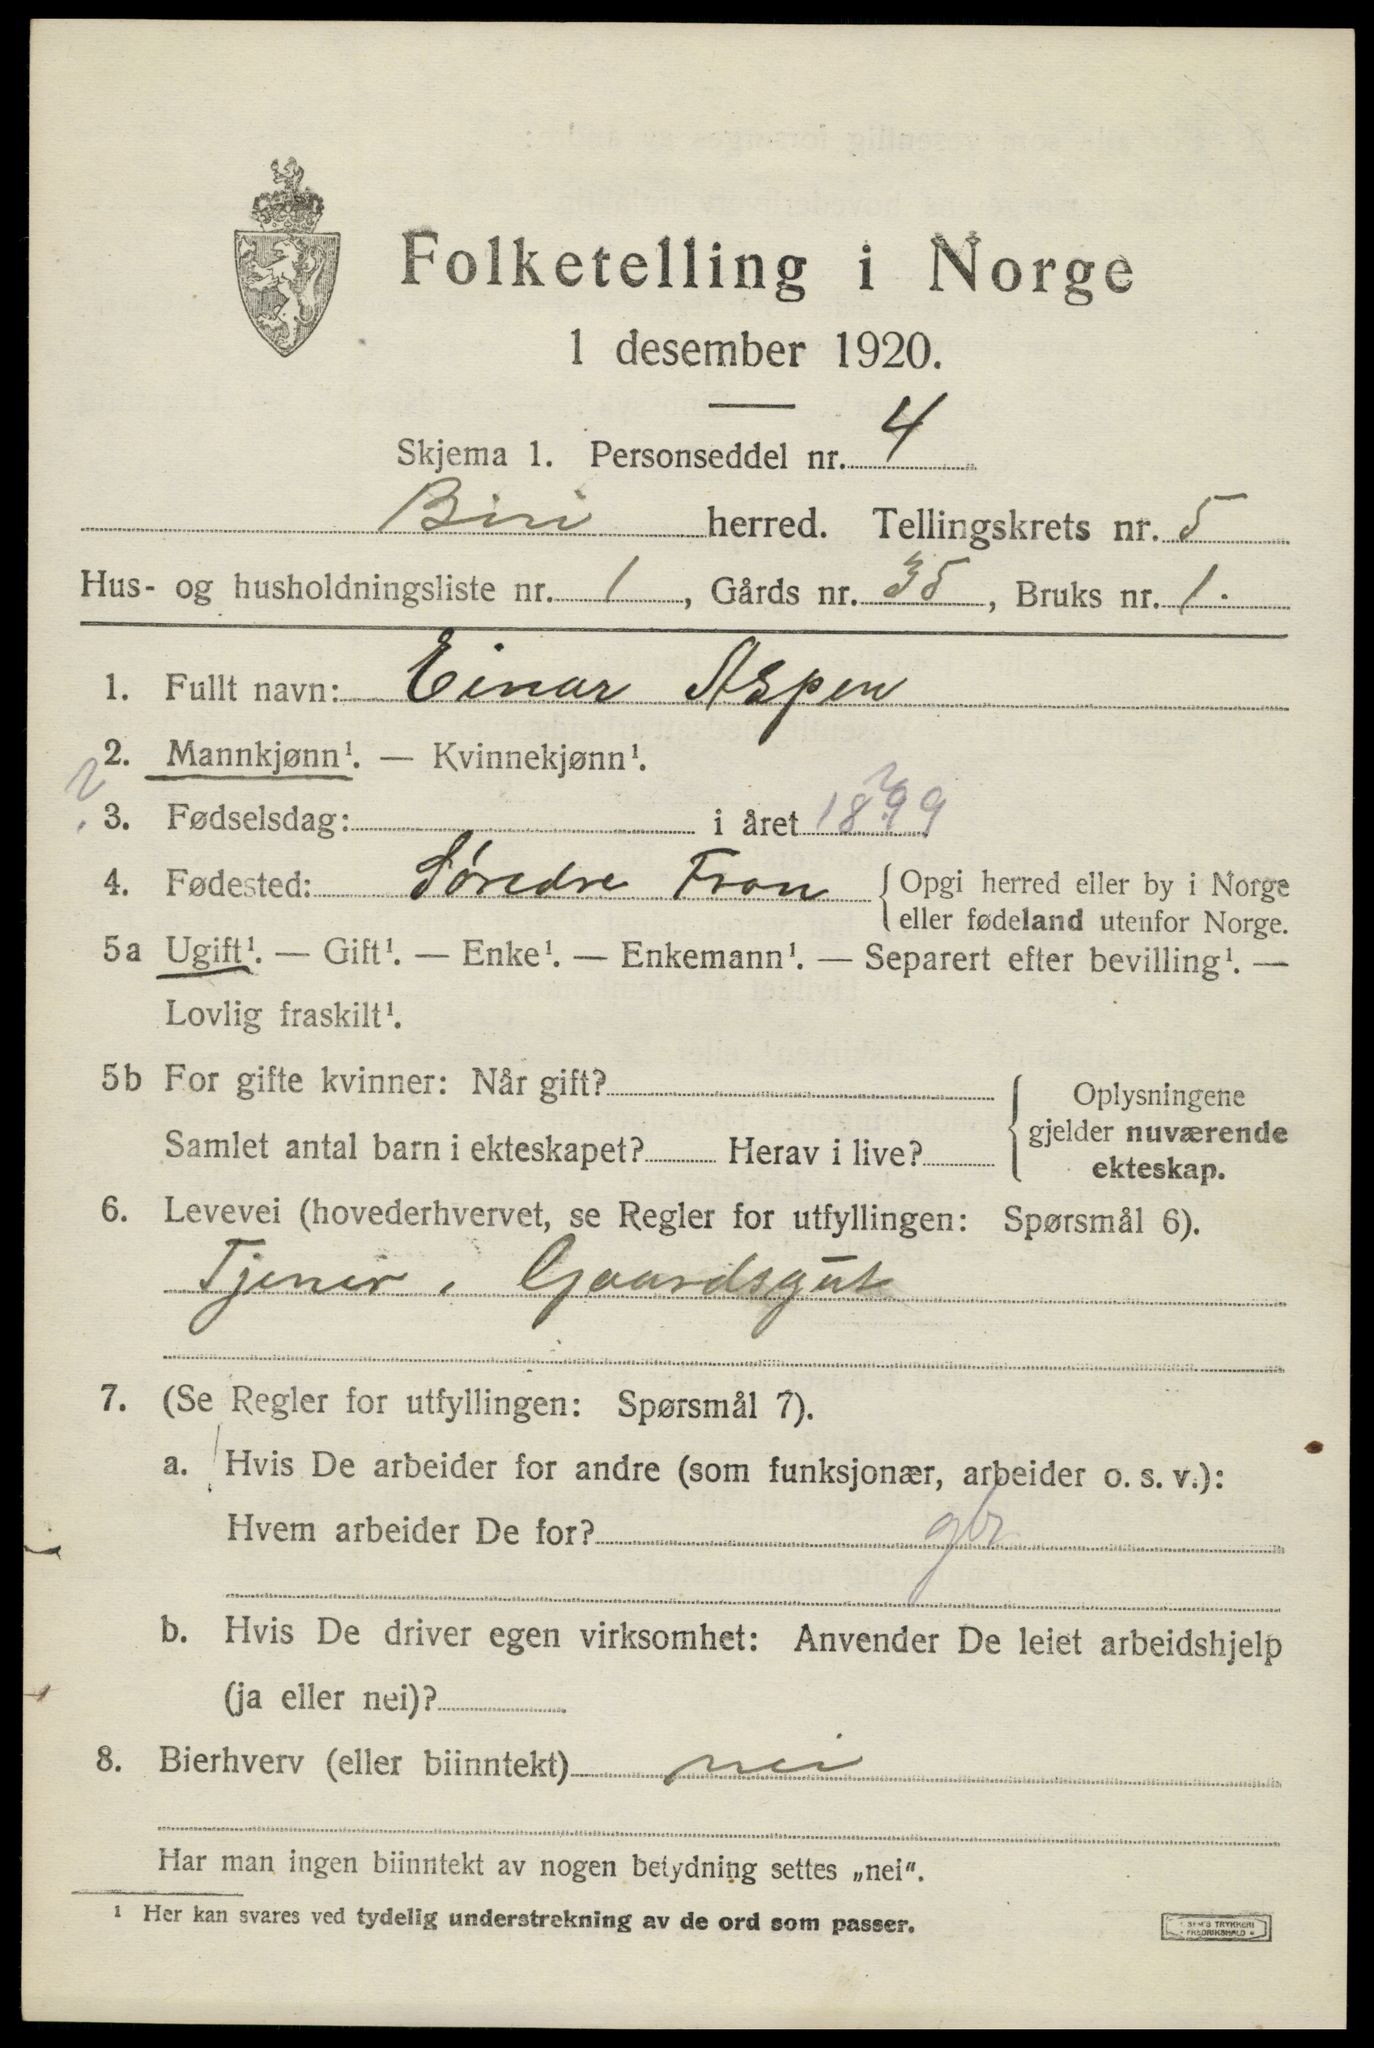 Folketelling i Norge
1 desember 1920.
Skjema 1. Personseddel nr. 4
Biri herred. Tellingskrets nr. 5
Hus- og husholdningsliste nr. 1, Gårds nr. 35, Bruks nr. 1.
1. Fullt navn: Einar Aspen
2. Mannkjønn¹. — Kvinnekjønn¹.
?
3. Fødselsdag: i året 1899
4. Fødested: Søredre Fron { Opgi herred eller by i Norge
eller fødeland utenfor Norge.
5a Ugift¹. — Gift¹. — Enke¹. — Enkemann¹. — Separert efter bevilling¹. —
Lovlig fraskilt¹.
5b For gifte kvinner: Når gift? { Oplysningene
gjelder nuværende
ekteskap.
Samlet antal barn i ekteskapet? Herav i live?
6. Levevei (hovederhvervet, se Regler for utfyllingen: Spørsmål 6).
Tjener, Gaardsgut
7. (Se Regler for utfyllingen: Spørsmål 7).
a. Hvis De arbeider for andre (som funksjonær, arbeider o. s. v.):
Hvem arbeider De for? gbr
b. Hvis De driver egen virksomhet: Anvender De leiet arbeidshjelp
(ja eller nei)?
8. Bierhverv (eller biinntekt) nei
Har man ingen biinntekt av nogen betydning settes „nei".
¹ Her kan svares ved tydelig understrekning av de ord som passer.
SEM'S TRYKKERI
FREDRIKSHALD